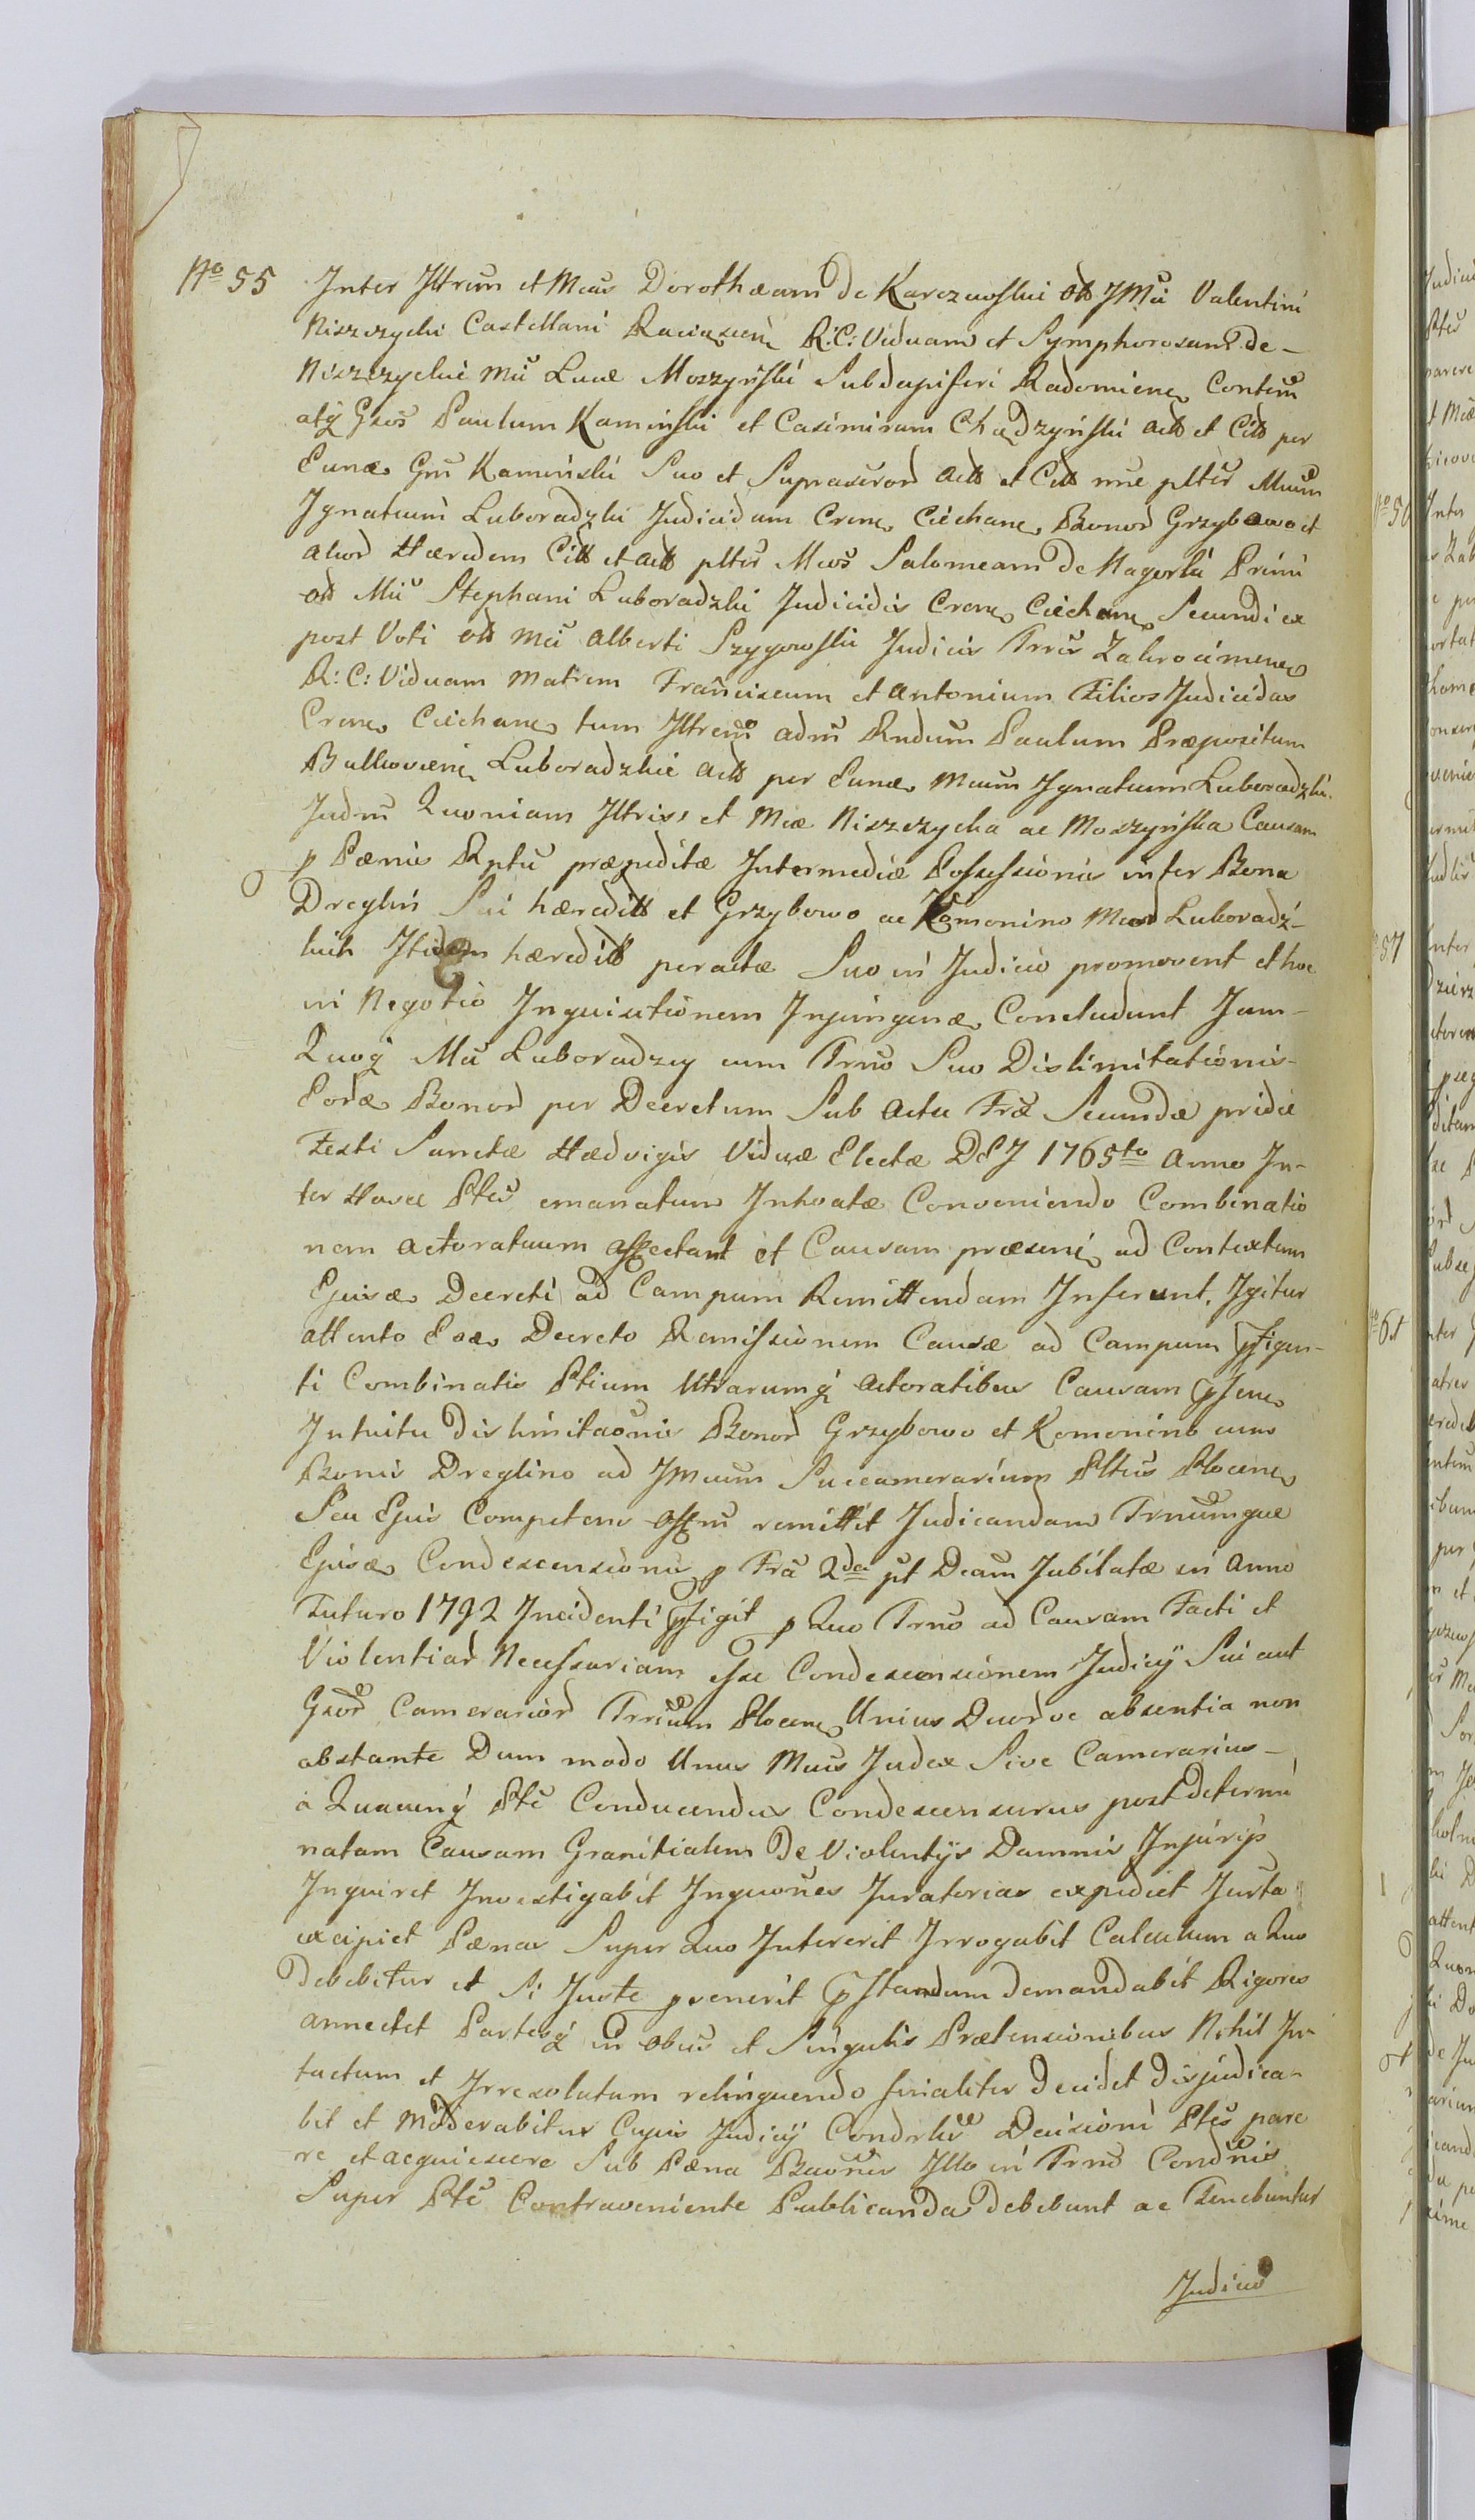 No 55 Inter Illrem et Mcas Dorotheam de Karczewskie olt JMci Valentini
Niszczycki Castellani Raciążen R: C: Viduam et Symphorosam de –
Niszczyckie Mci Lucæ Moszyński Subdapiferi Radomien Contem
atq Gsos Paulum Kamiński et Casimirum Chądzyński actt et Citt per
Eunæ Gm Kamiński Suo et Suprascrord actt et Citt nne pltis Mcum
Ignatium Luboradzki Judicidam Cren Ciechan Bonord Grzybowo et
aliord Hæredem Citt et actt pltis Mcos Salomeam de Nagorki Primi
olt Mci Stephani Luboradzki Judicidis Cren Ciechan Secundi ex
post Voti olt Mci Alberti Szygowski Judicis Trris Zakrocimen
R: C: Viduam Matrem Franciscum et Antonium Filios Judicidas
Cren Ciechan tum Illrem adm Rndum Paulum Præpositum
Bulkovien Luboradzkie actt per Eunæ Mcum Ignatium Luboradzki
Judm Quoniam Illriss et Mcæ Niszczycka ac Moszyńska Causam
p Pænis Rptu præpeditæ Intermediæ Possessionis inter Bona
Dreglin Sui hæreditt et Grzybowo ac Komonino Mcord Luboradz-
kich Itidem hæreditt peractæ Suo in Judicio promovent et hoc
in Negotio Inquisitionem Injungenæ Concludunt Jam –
Quoq Mci Luboradzcy cum Trno Suo Dislimitationis –
Eordæ Bonord per Decretum Sub Actu Fræ Secundæ pridie
Festi Sanctæ Hædvigis Viduæ Electæ DEJ 1765to Anno In-
ter Hasce Ptes emanatum Inhoatæ Conveniendo Combinatio
nem actoratuum affectant et Causam præsen ad Contextum
Ejusæ Decreti ad Campum Remittendam Inferunt, Igitur
attento Eoæ Decreto Remissionem Causæ ad Campum pfigen-
ti Combinatis Ptium Utrarumq Actoratibus Causam psen
Intuitu Dislimitaonis Bonord Grzybowo et Komonino cum
Bonis Dreglino ad JMcum Succamerarium Pltus Plocen
Seu Ejus Competens Offm remittit Judicandam Trnumque
Ejusæ Condescensionis p Fra 2da pt Dcam Jubilatæ in Anno
Futuro 1792 Incidenti pfigit p Quo Trno ad Causam Facti et
Violentiard Necessariam esse Condescensionem Judicy Sui aut
Gsord Camerariord Trrium Plocen Unius Duordve absentia non
abstante Dum modo Unus Mcus Judex Sive Camerarius –
a Quacunq Pte Conducendus Condescensurus post Determi
natam Causam Granitialem De Violentijs Damnis Injurijs
Inquiret Investigabit Inquones Juratorias expediet Jurta
excipiet Pænas Super Quo Intererit Irrogabit Calculum a Quo
Debebitur et Si Juste pvenerit pstandum demandabit Rigores
annectet Partesq in obus et Singulis Prætensionibus Nihil In-
tactum et Irresolutum relinquendo finaliter Decidet Disjudica-
bit et Moderabitur Cujus Judicij Condrlis Decisioni Ptes pare
re et acquiescere Sub Pæna Banonis Illo in Trno Condnis
Super Pte Contraveniente Publicanda debebunt ac Tenebuntur
Judicio